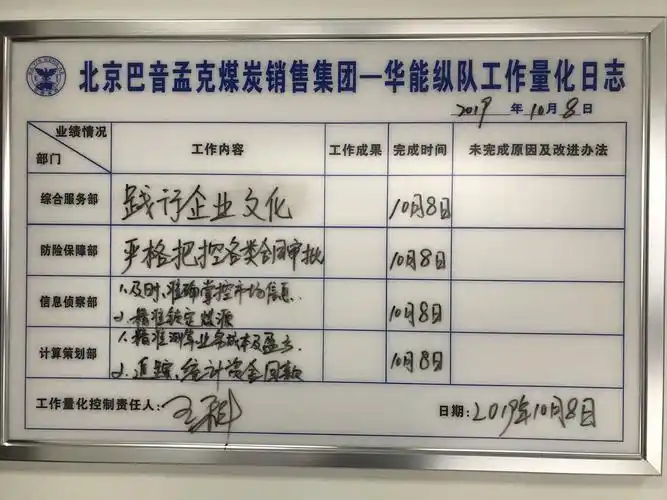 北京巴音孟克煤炭销售集团—华能纵队工作量化日志
2019 年 10 月 8 日
业绩情况
部门 工作内容 工作成果 完成时间 未完成原因及改进办法
综合服务部 践行企业文化 10月8日
防险保障部 严格把控各类合同审批 10月8日
信息侦察部 1.及时、准确掌控市场信息. 10月8日
2.精准锁定煤源
计算策划部 1.精准测算业务成本及盈亏. 10月8日
2.追踪、统计资金回款
工作量化控制责任人: 王 日期: 2019年10月8日